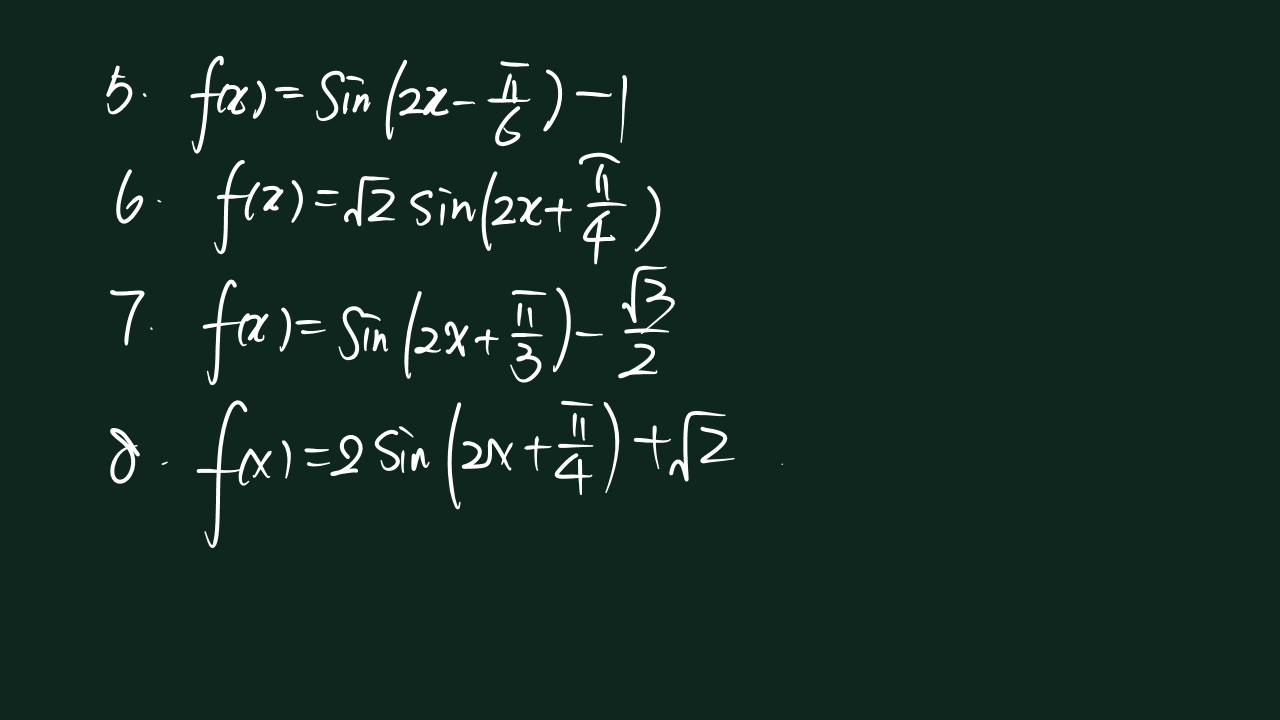 5. f(x) = Sin(2x - π/6) - 1
6. f(x) = √2 sin(2x + π/4)
7. f(x) = Sin(2x + π/3) - √3/2
8. f(x) = 2 Sin(2x + π/4) + √2